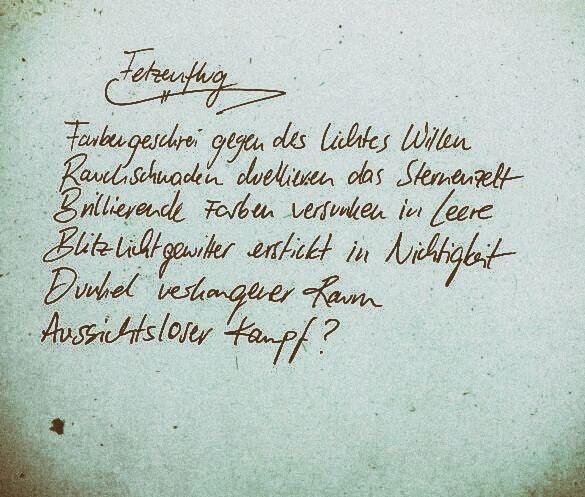 Fetzenflug
Farbengeschrei gegen des Lichtes Willen
Rauchschwaden duellieren das Sternenzelt
Brillierende Farben versunken in Leere
Blitzlichtgewitter erstickt in Nichtigkeit
Dunkel verhangener Raum
Aussichtsloser Kampf?